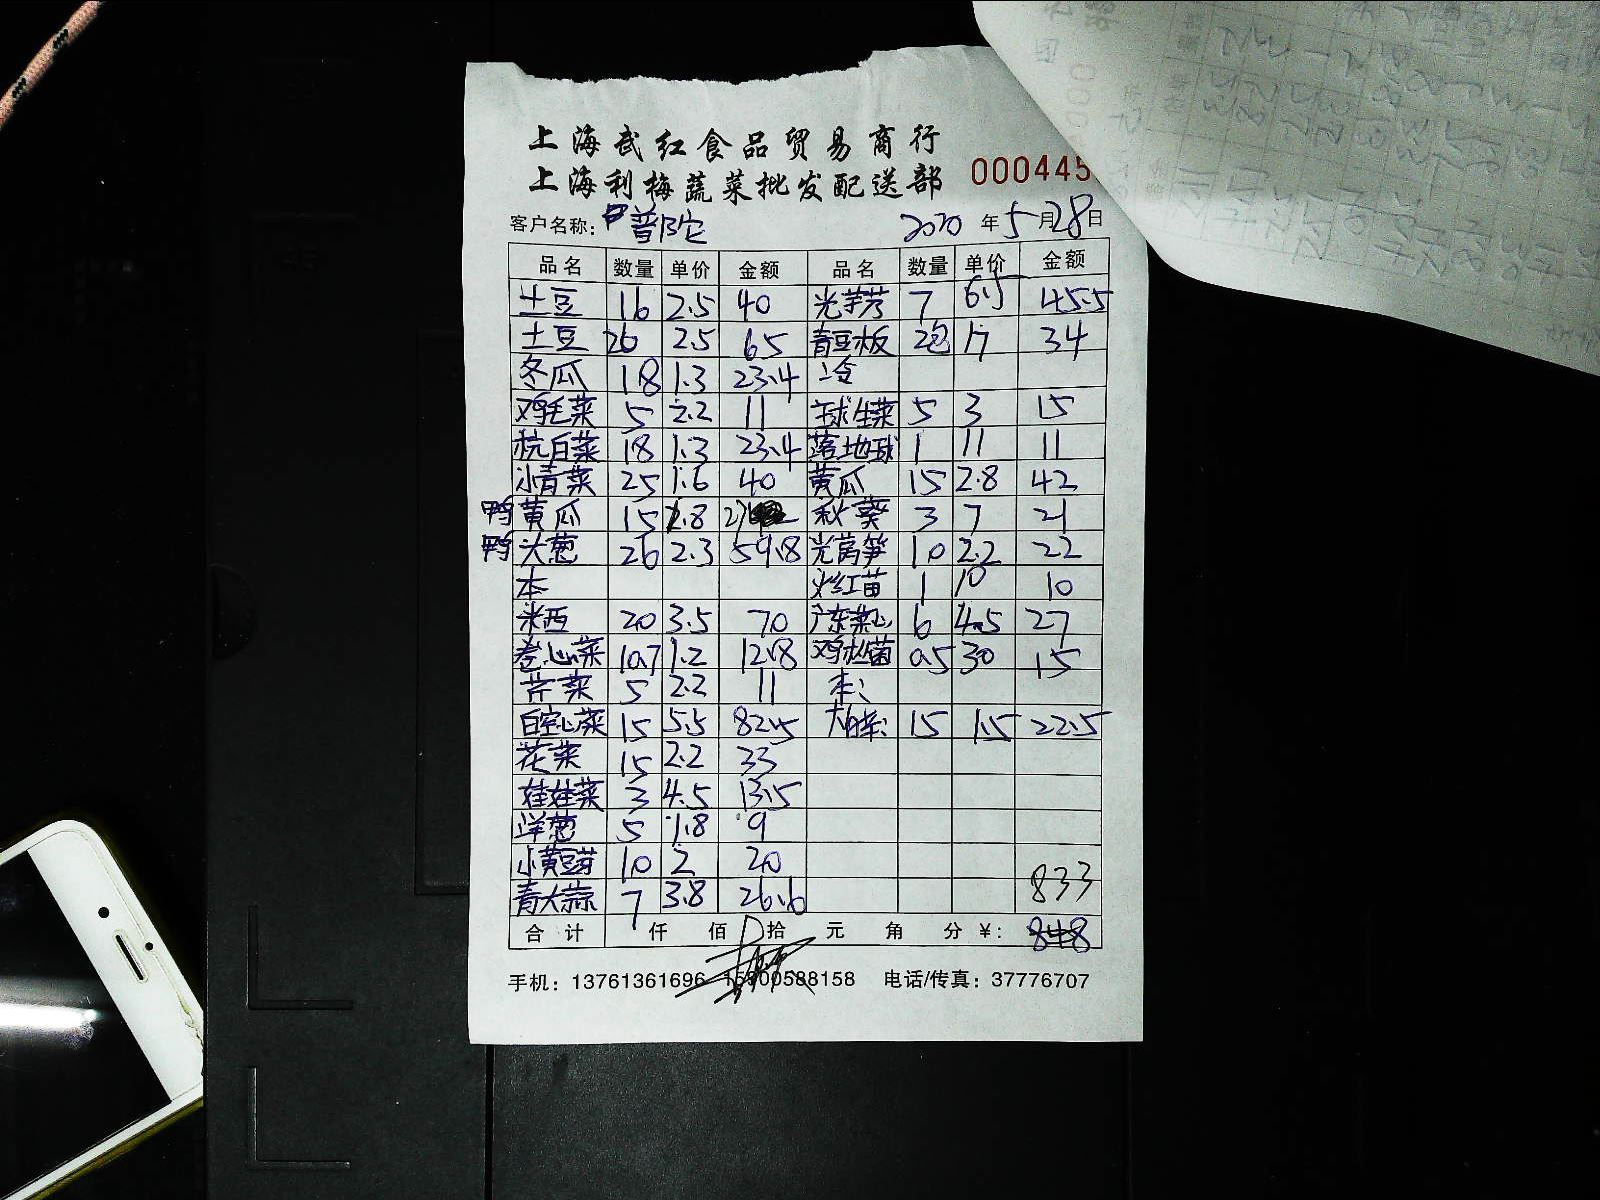 上海武红食品贸易商行
上海利梅蔬菜批发配送部 000445
客户名称: 普陀 2020 年 5 月 28 日
品名 数量 单价 金额 品名 数量 单价 金额
土豆 16 2.5 40 光芋艿 7 6.5 45.5
土豆 26 2.5 65 青豆板 2包 17 34
冬瓜 18 1.3 23.4 冷
鸡毛菜 5 2.2 11 球生菜 5 3 15
杭白菜 18 1.3 23.4 落地球 1 11 11
小青菜 25 1.6 40 黄瓜 15 2.8 42
鸭 黄瓜 15 1.8 27 秋葵 3 7 21
鸭 大葱 26 2.3 59.8 光莴笋 10 2.2 22
本 红苗 1 10 10
米西 20 3.5 70 广东菜心 6 4.5 27
卷心菜 10.7 1.2 12.8 鸡松菌 0.5 30 15
芹菜 5 2.2 11 本:
白空心菜 15 5.5 82.5 大白菜 15 1.5 22.5
花菜 15 2.2 33
娃娃菜 3 4.5 13.5
洋葱 5 1.8 9
小黄豆芽 10 2 20
青大蒜 7 3.8 26.6 833
合计 仟 佰 拾 元 角 分 ¥: 848
手机: 13761361696 15300588158 电话/传真: 37776707